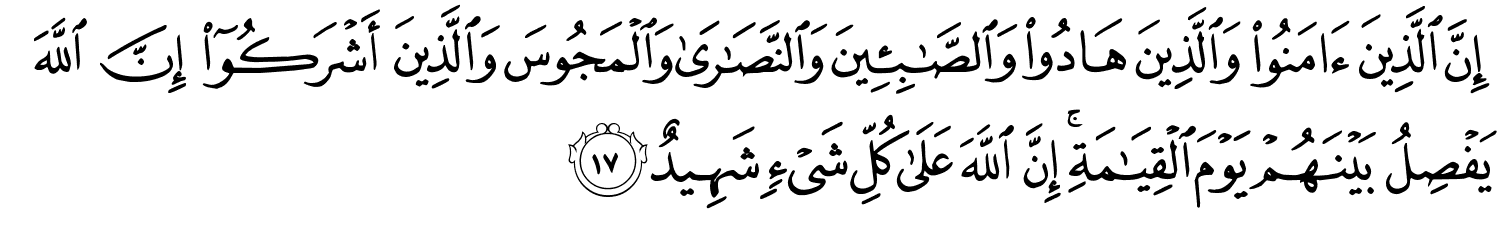 إِنَّ ٱلَّذِينَ ءَامَنُوا۟ وَٱلَّذِينَ هَادُوا۟ وَٱلصَّـٰبِـِٔينَ وَٱلنَّصَـٰرَىٰ وَٱلْمَجُوسَ وَٱلَّذِينَ أَشْرَكُوٓا۟ إِنَّ ٱللَّهَ
يَفْصِلُ بَيْنَهُمْ يَوْمَ ٱلْقِيَـٰمَةِ ۚ إِنَّ ٱللَّهَ عَلَىٰ كُلِّ شَىْءٍ شَهِيدٌ ١٧